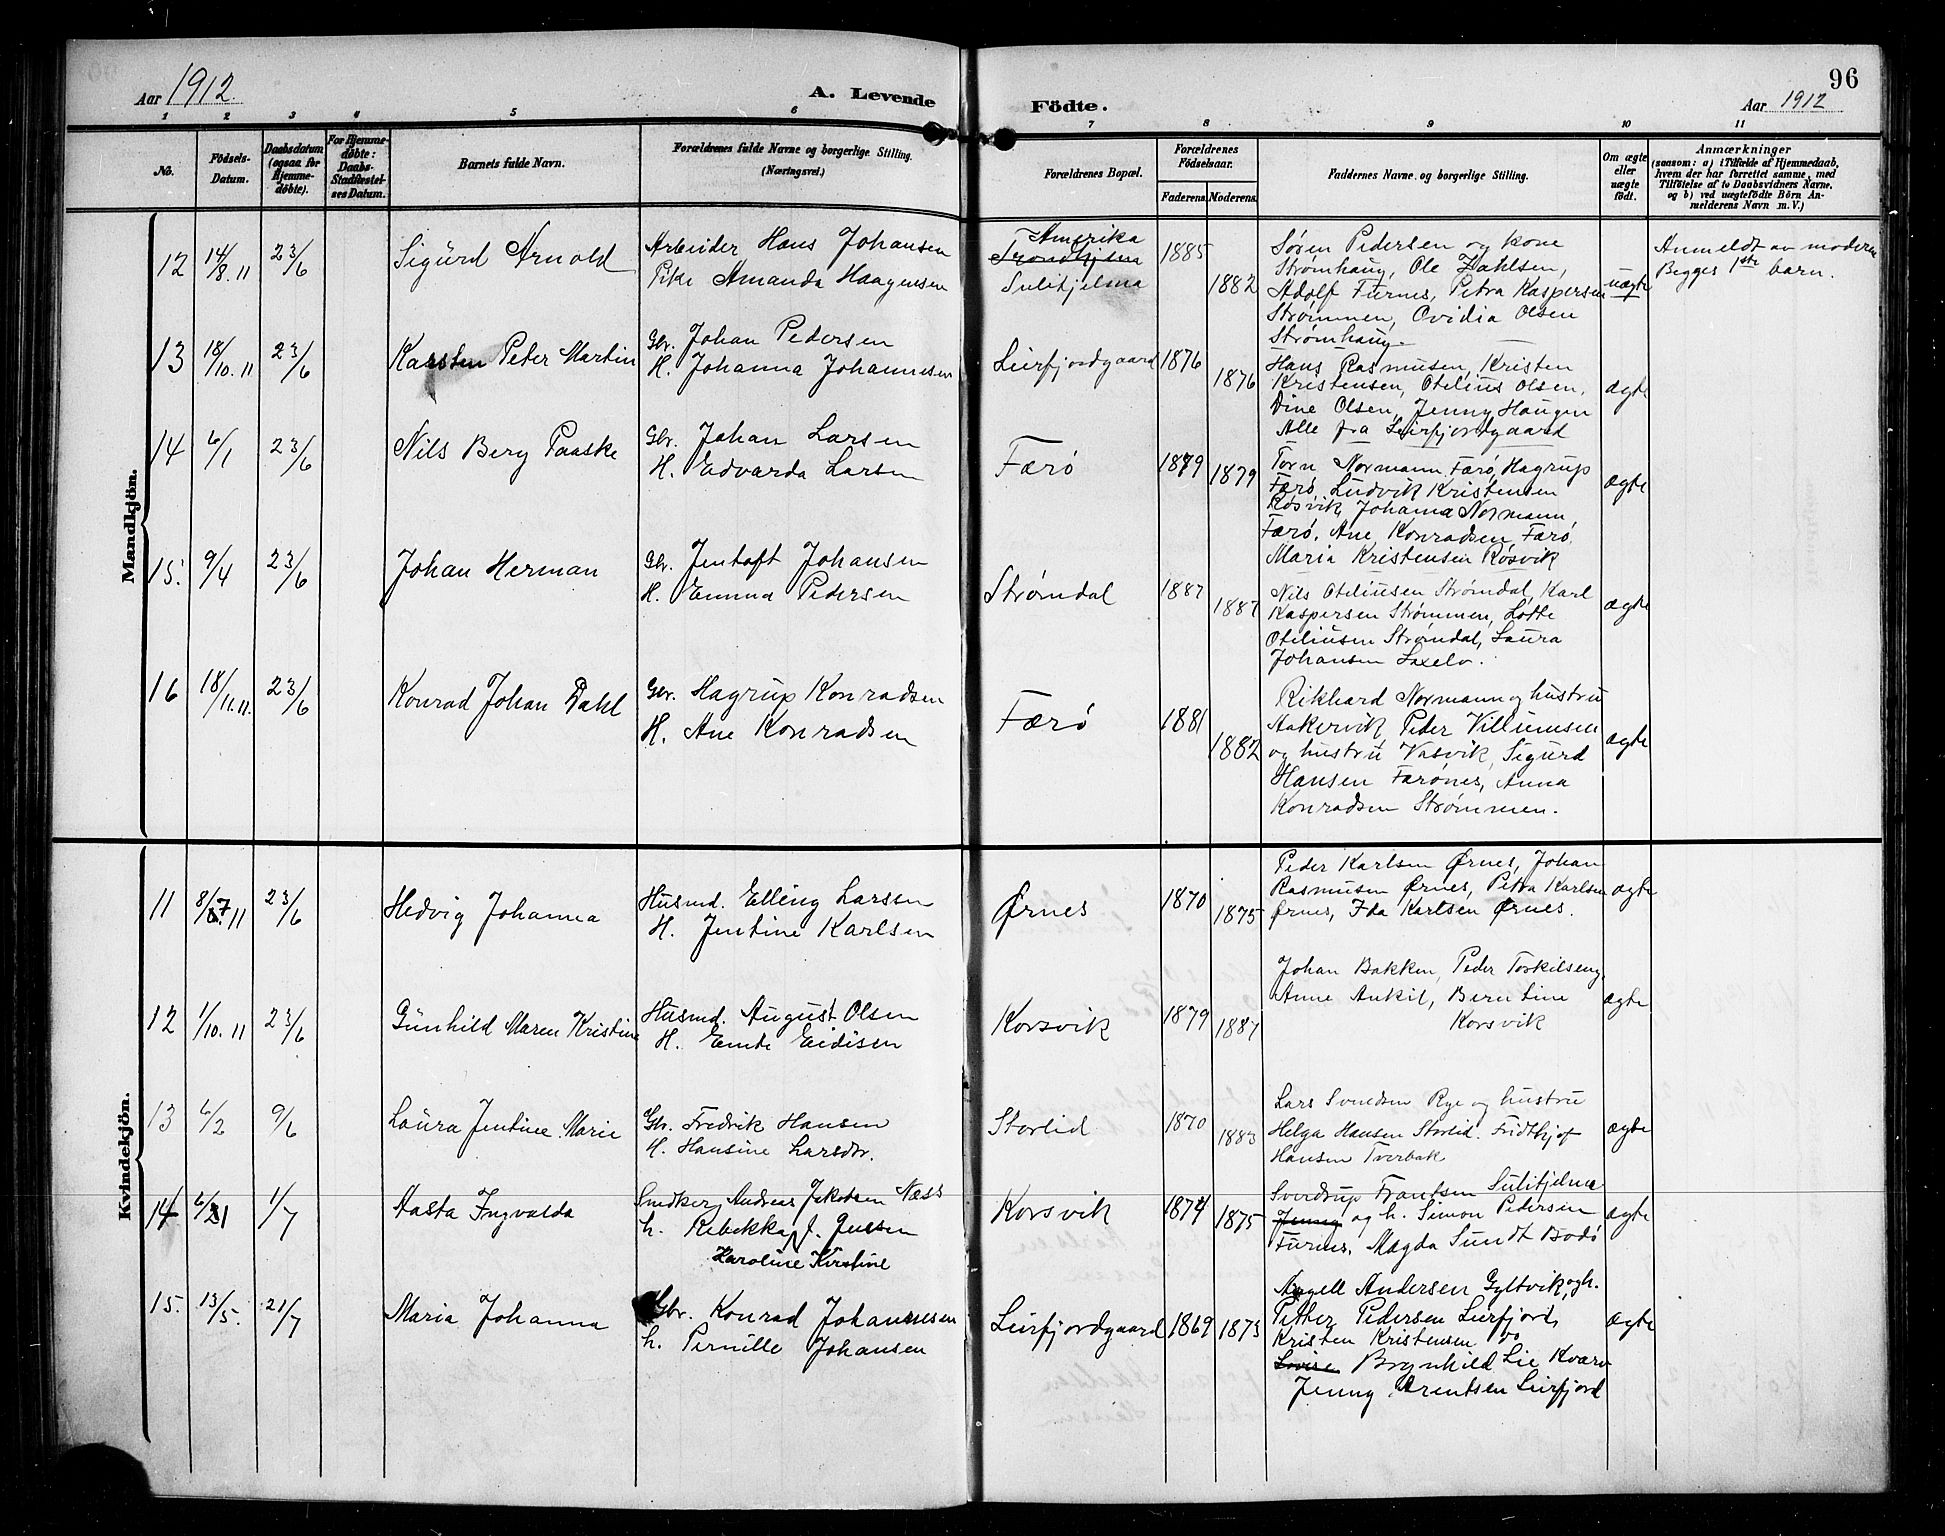 96
Aar 1912.
A. Levende
Födte.
Aar 1912
1 2 3 4 5 6 7 8 9 10 11
No.
Födsels-
Datum.
Daabsdatum
(ogsaa for
Hjemme-
döbte).
For Hjemme-
döbte:
Daabs-
Stadfæstel-
ses Datum.
Barnets fulde Navn.
Forældrenes fulde Navne og borgerlige Stilling.
(Næringsvei.)
Forældrenes Bopæl.
Forældrenes
Födselsaar.
Faderens. Moderens.
Faddernes Navne og borgerlige Stilling.
Om ægte
eller
uægte
födt.
Anmærkninger
(saasom: a) i Tilfælde af Hjemmedaab,
hvem der har forrettet samme, med
Tilföielse af to Daabsvidners Navne,
og b) ved uægtefödte Börn An-
melderens Navn m. V.)
Mandkjön.
12 14/8.11 23/6 Sigurd Arnold
Arbeider Hans Johansen
Pike Amanda Haagensen
Amerika
Trondhjem
Sulitjelma
1885 1882
Søren Pedersen og kone
Strømhaug, Ole Dahlsen,
Adolf Furnes, Petra Kaspersen
Strømmen, Ovidia Olsen
Strømhaug.
uægte
Anmeldt av moderen
Begges 1ste barn.
13 18/10.11 23/6 Karsten Peter Martin
Gbr. Johan Pedersen
H. Johanna Johannesen
Leirfjordgaard 1876 1876
Hans Rasmusen, Kristen
Kristensen, Otelius Olsen,
Dine Olsen, Jenny Haugen
Alle fra Leirfjordgaard
ægte
14 6/1 23/6 Nils Berg Paaske
Gbr. Johan Larsen
H. Edvarda Larsen
Færø 1879 1879
Torn Normann Færø, Hagrup
Færø, Ludvik Kristensen
Røsvik, Johanna Normann,
Færø, Ane Konradsen Færø,
Maria Kristensen Røsvik
ægte
15. 9/4 23/6 Johan Herman
Gbr. Jentoft Johansen
H. Emma Pedersen
Strømdal 1887 1887
Nils Oteliusen Strømdal, Karl
Kaspersen Strømmen, Lotte
Oteliusen Strømdal, Laura
Johansen Laxelv.
ægte
16 18/11.11. 23/6 Konrad Johan Dahl
Gbr. Hagrup Konradsen
H. Ane Konradsen
Færø 1881 1882
Rikhard Normann og hustru
Aakervik, Peder Villumsen
og hustru Vasvik, Sigurd
Hansen Færønes, Anna
Konradsen Strømmen.
ægte
Kvindekjön.
11 8/7 11 23/6 Hedvig Johanna
Husmd. Elling Larsen
H. Jentine Karlsen
Ørnes 1870 1875
Peder Karlsen Ørnes, Johan
Rasmusen Ørnes, Petra Karlsen
Ørnes, Ida Karlsen Ørnes.
ægte
12 1/10.11 23/6 Gunhild Maren Kristine
Husmd. August Olsen
H. Emte Eidisen
Korsvik 1879 1887
Johan Bakken, Peder Torkilseng,
Anne Ankil, Berntine
Korsvik
ægte
13 6/2 9/6 Laura Jentine Marie
Gbr. Fredrik Hansen
H. Hansine Larsdtr.
Storlid 1870 1883
Lars Svendsen Rye og hustru
Helga Hansen Storlid. Fridthjof
Hansen Tverbak
ægte
14 6/21 1/7 Aasta Ingvalda
Snedker Andreas Jakobsen Næss
h. Rebekka, f. Jensen
Karoline Kirstine
Korsvik 1874 1875
Sverdrup Frantsen Sulitjelma
Jenny og h. Simon Pedersen
Furnes, Magda Sundt Bodø
ægte
15. 13/5. 21/7 Maria Johanna
Gbr. Konrad Johannesen
h. Pernille Johansen
Leirfjordgaard 1869 1873
Angell Andersen Gyltvik, og h.
Petter Pedersen Leirfjord,
Kristen Kristensen do
Brynhild Lie Kværv
Jenny Arentsen Leirfjord
ægte